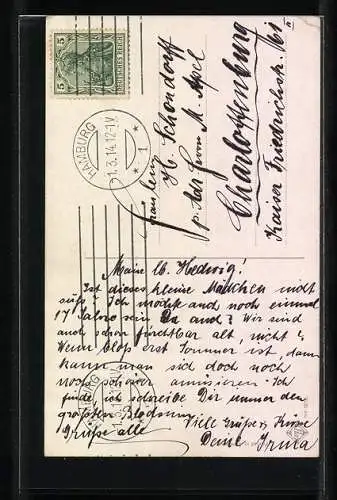 5 5
DEUTSCHES REICH
HAMBURG
1.3.14.12-1V
* 1
Fräulein
H. Schondorff
p. Adr Herrn M. Apel
Charlottenburg
Kaiser Friedrichstr.
II
Meine lb. Hedwig!
Ist dieses kleine Mädchen nicht
süß? Ich möchte auch noch einmal
17 Jahre sein Du auch? Wir sind
auch schon furchtbar alt, nicht?
Wenn bloß erst Sommer ist, dann
kann man sich doch noch
noch schöner amüsieren. Ich
finde, ich schreibe Dir immer den
größten Blödsinn. Viele Grüße & Küsse
Grüße alle
Deine Irma